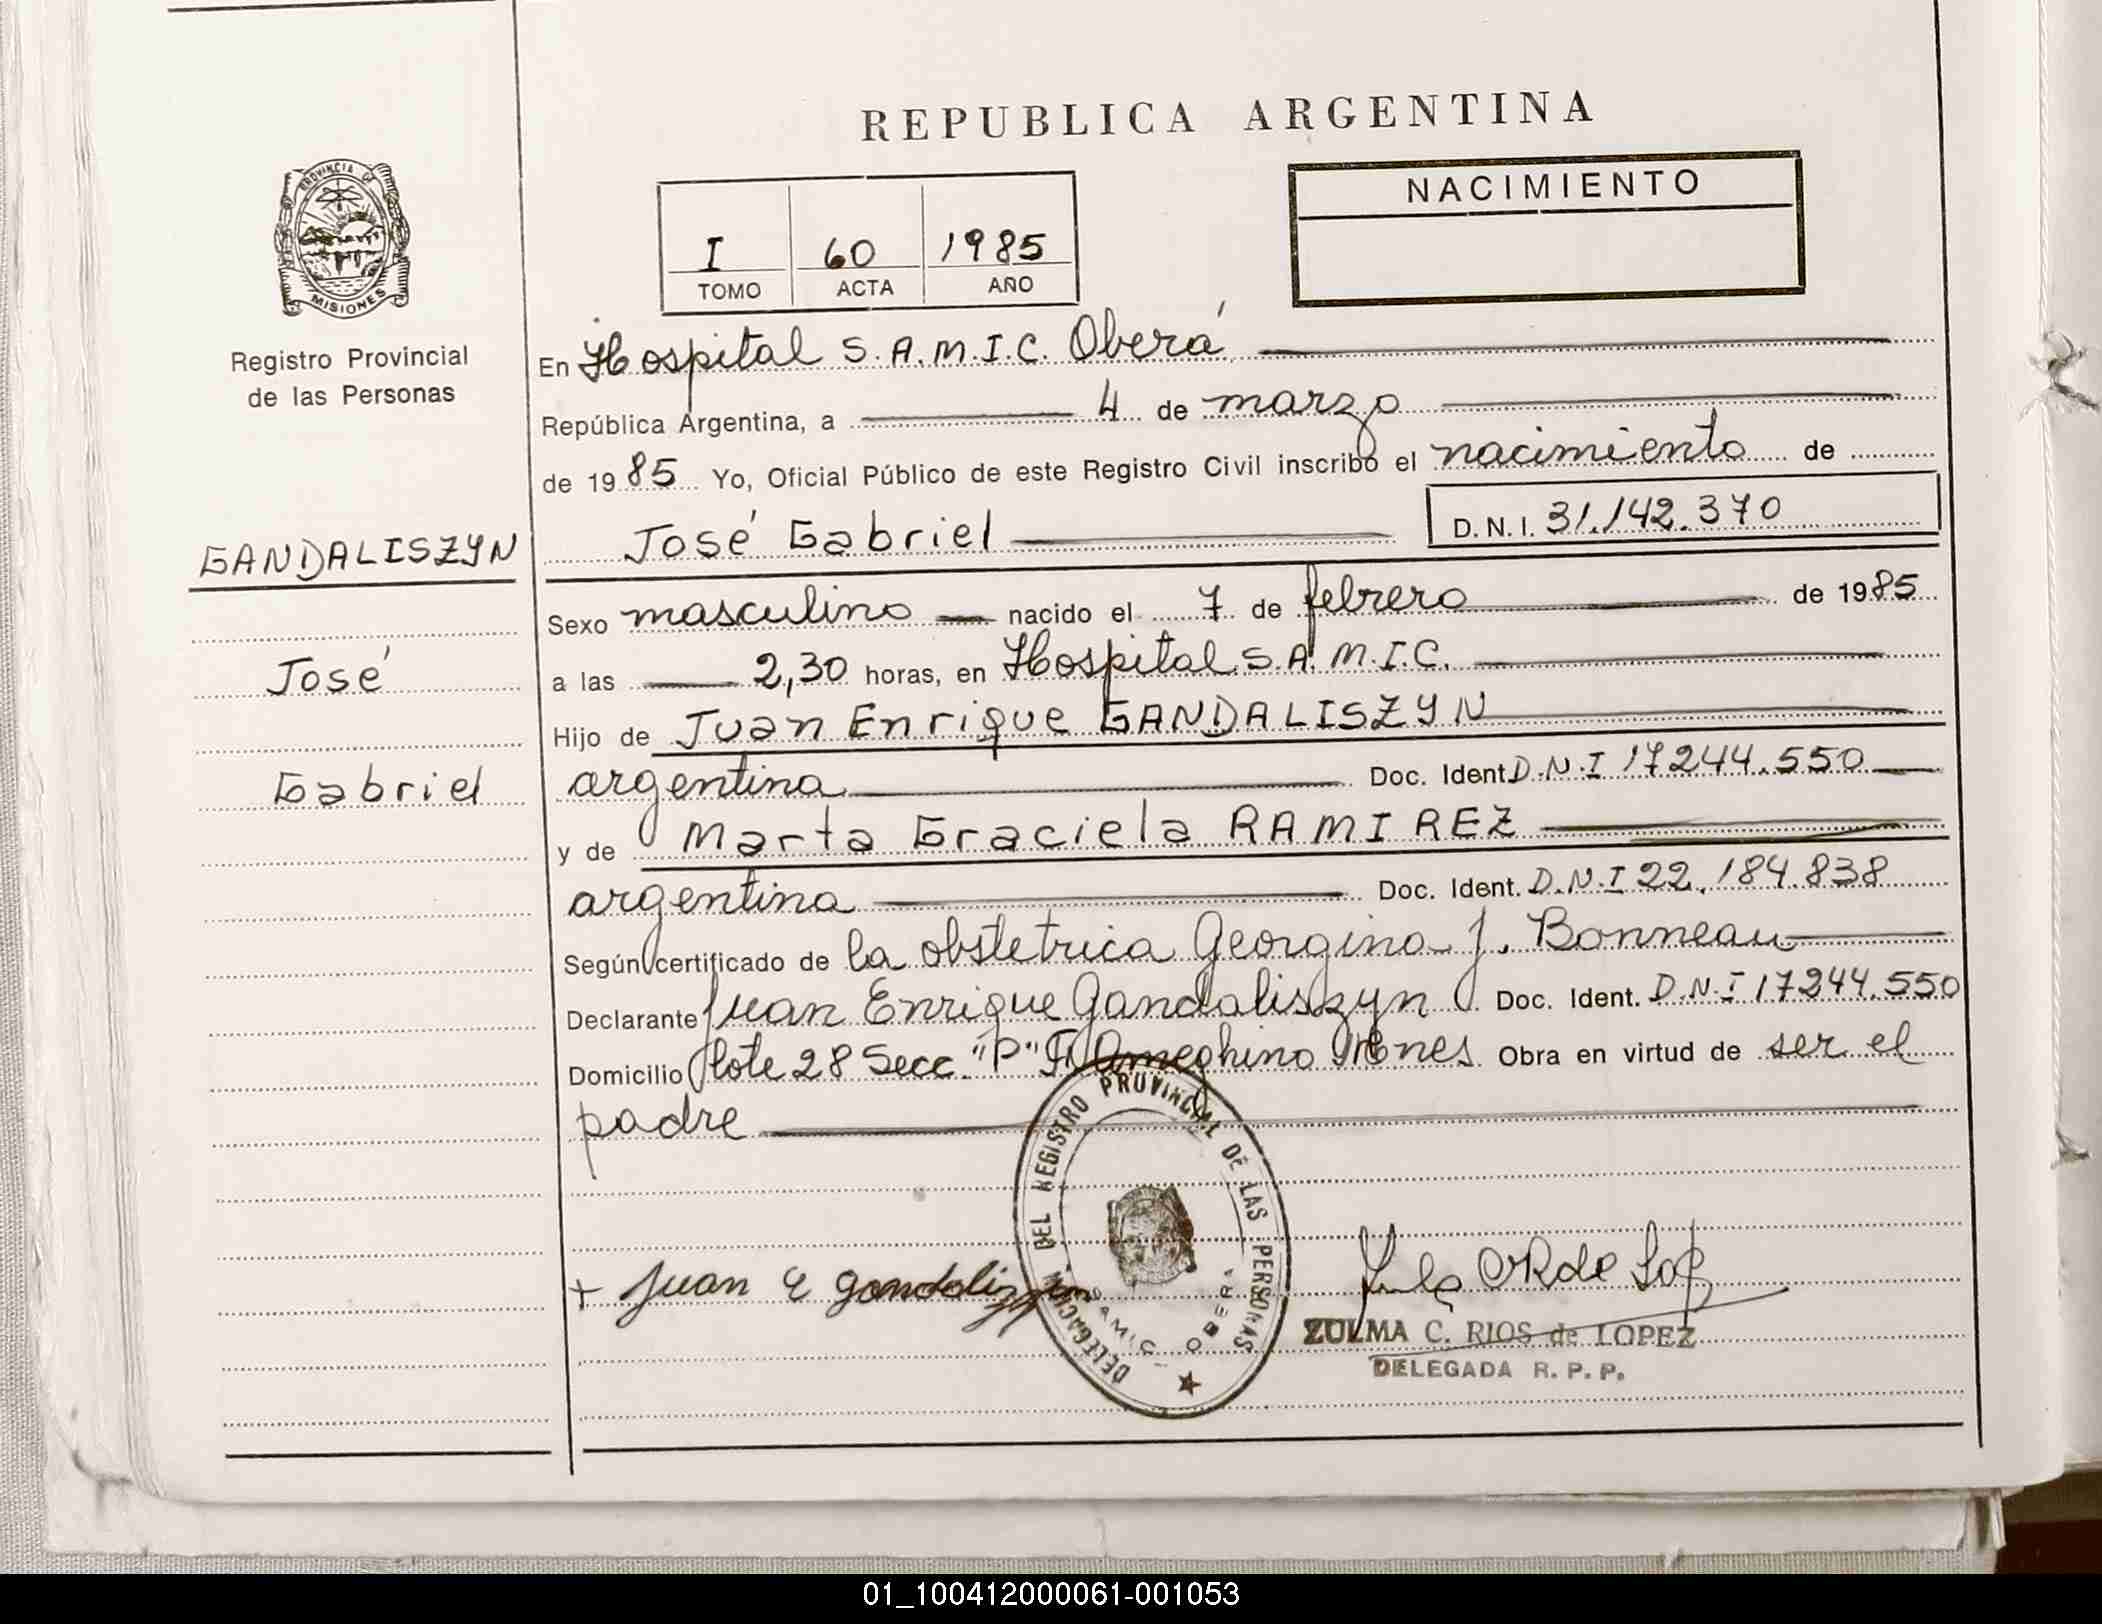 REPUBLICA ARGENTINA
PROVINCIA DE
MISIONES
Registro Provincial
de las Personas
NACIMIENTO
I 60 1985
TOMO ACTA AÑO
En Hospital S.A.M.I.C. Oberá
República Argentina, a 4 de marzo
de 1985 Yo, Oficial Público de este Registro Civil inscribo el nacimiento de
GANDALISZYN
José Gabriel D.N.I. 31.142.370
Sexo masculino nacido el 7 de febrero de 1985
José
a las 2,30 horas, en Hospital S.A.M.I.C.
Hijo de Juan Enrique GANDALISZYN
Gabriel
argentina Doc. Ident D.N.I 17244.550
y de Marta Graciela RAMIREZ
argentina Doc. Ident. D.N.I 22.184.838
Según certificado de la obstetrica Georgina J. Bonneau
Declarante Juan Enrique Gandaliszyn Doc. Ident. D.N.I 17244.550
Domicilio lote 28 Secc. "P" F. Ameghino Mnes Obra en virtud de ser el
padre
DELEGACION DEL REGISTRO PROVINCIAL DE LAS PERSONAS
SAMIC - OBERA
+ Juan E gandaliszyn
ZULMA C. RIOS de LOPEZ
DELEGADA R. P. P.
01_100412000061-001053